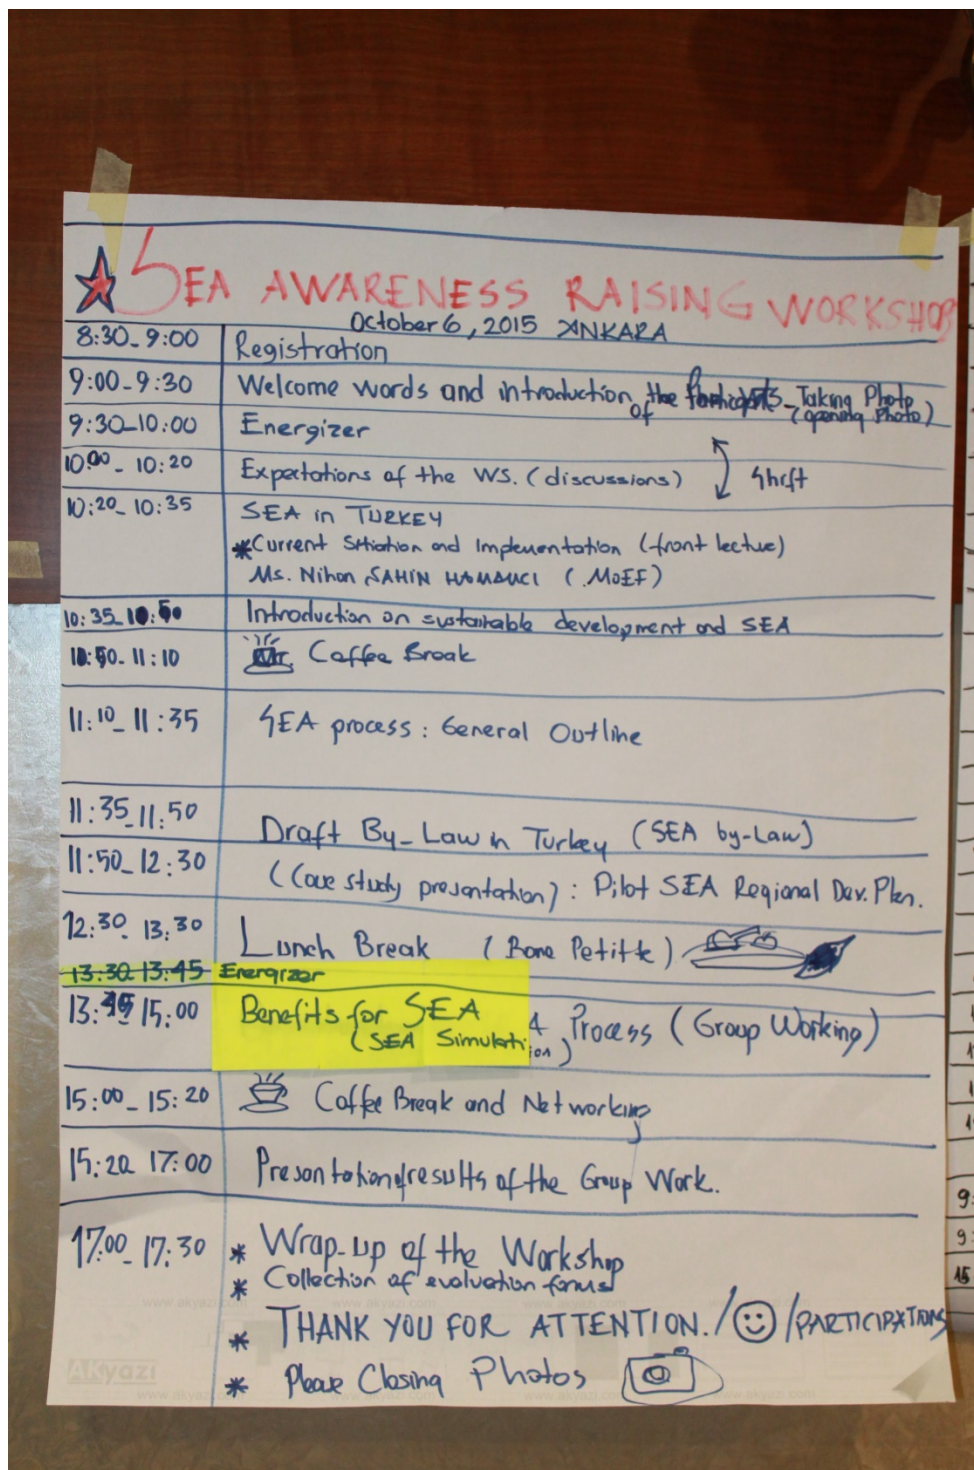 SEA AWARENESS RAISING WORKSHOP
October 6, 2015 ANKARA
8:30-9:00 Registration
9:00-9:30 Welcome words and introduction of the Participants - Taking Photo (opening Photo)
9:30-10:00 Energizer
10:00 - 10:20 Expectations of the WS. (discussions) Shift
10:20-10:35 SEA in TURKEY
* Current Sitiation and Implementation (front lectue)
Ms. Nihan ŞAHİN HAMAMCI (MoEF)
10:35-10:50 Introduction on sustainable development and SEA
10:50-11:10 Coffee Break
11:10-11:35 SEA process: General Outline
11:35-11:50 Draft By-Law in Turkey (SEA by-Law)
11:50-12:30 (Case study presentation): Pilot SEA Regional Dev. Plan.
12:30-13:30 Lunch Break (Bone Petitte)
13:30-13:45 Energizer
13:45 15:00 Benefits for SEA Process (Group Working)
(SEA Simulation)
15:00-15:20 Coffee Break and Networking
15:20 17:00 Presentation of results of the Group Work.
17:00-17:30 * Wrap-up of the Workshop
* Collection of evaluation forms
* THANK YOU FOR ATTENTION. / /PARTICIPATIONS
* Please Closing Photos
www.akyazi.com
AKyazi
www.akyazi.com
9:
9:
15